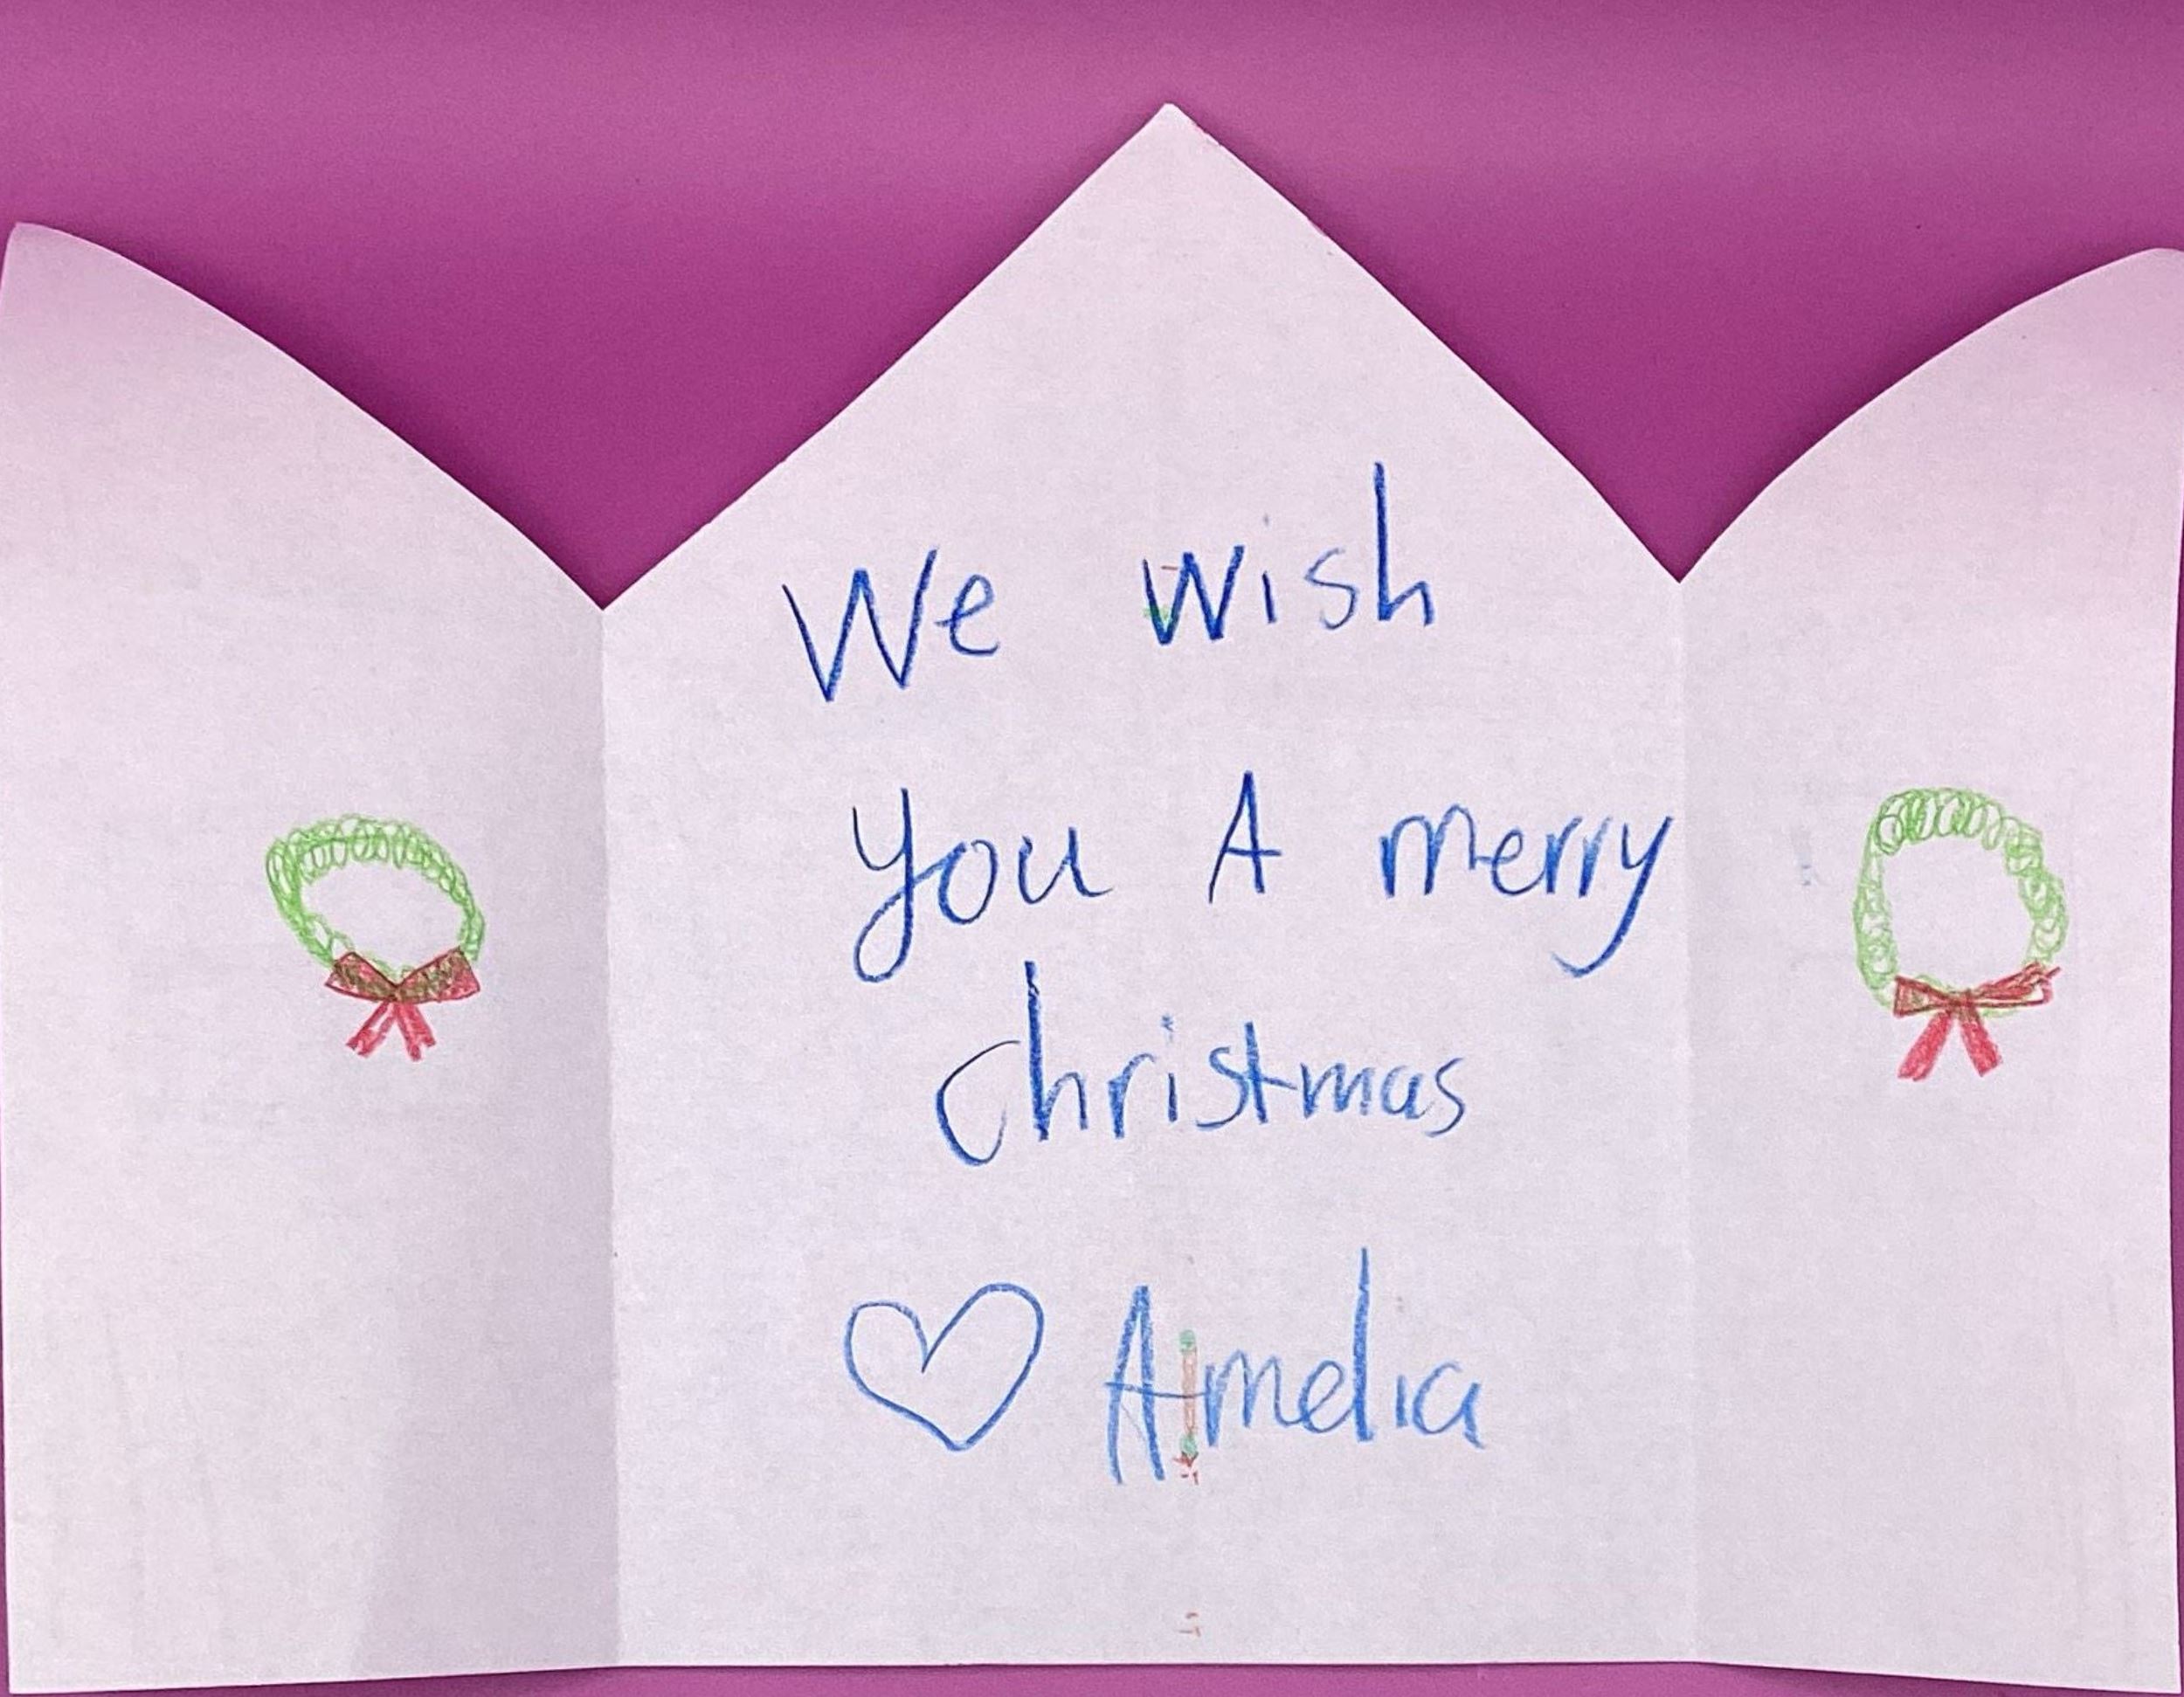 We wish
you A merry
christmas
♡ Amelia